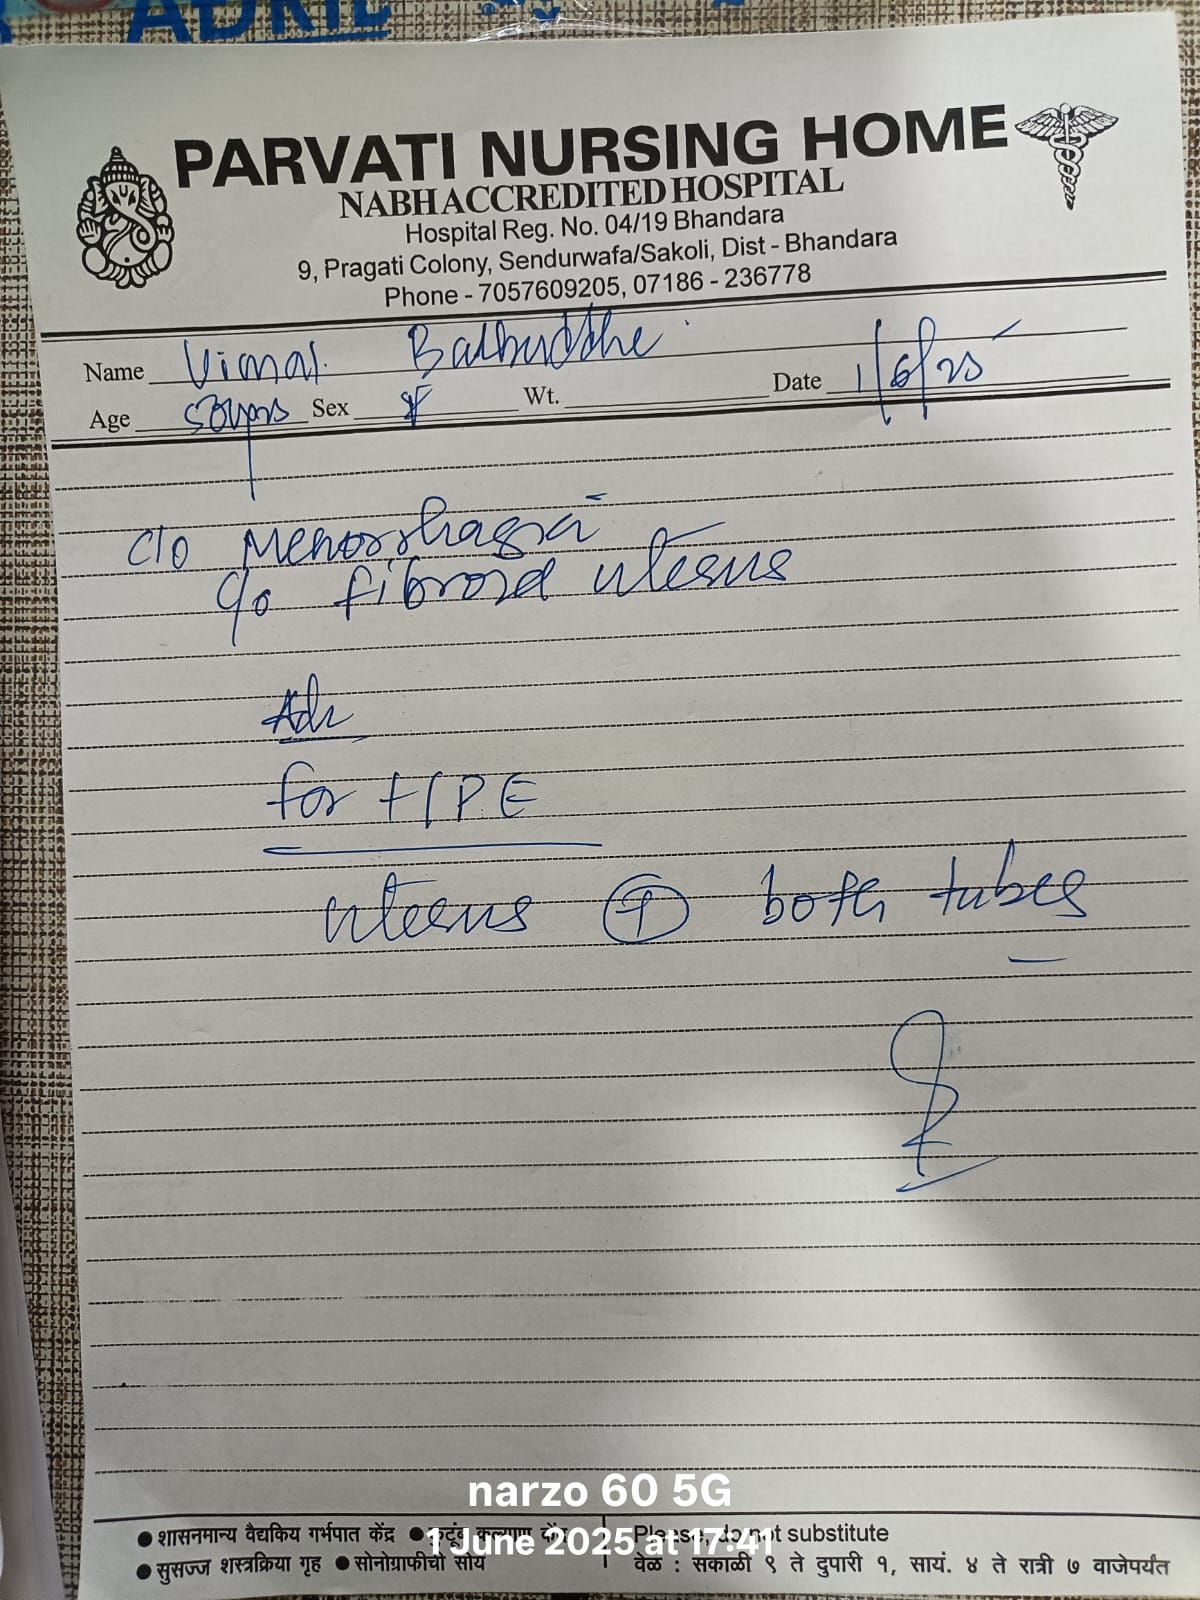 PARVATI NURSING HOME
NABH ACCREDITED HOSPITAL
Hospital Reg. No. 04/19 Bhandara
9, Pragati Colony, Sendurwafa/Sakoli, Dist - Bhandara
Phone - 7057609205, 07186 - 236778
Name Vimal Balbuddhe
Age Sex F Wt. Date 1/6/25
c/o Menorrhagia
c/o fibroid uterus
Adv
for HPE
uterus + both tubes
narzo 60 5G
1 June 2025 at 17:41
● शासनमान्य वैद्यकिय गर्भपात केंद्र ● कुटूंब कल्याण केंद्र
● सुसज्ज शस्त्रक्रिया गृह ● सोनोग्राफीची सोय
Please, do not substitute
वेळ : सकाळी ९ ते दुपारी १, सायं. ४ ते रात्री ७ वाजेपर्यंत